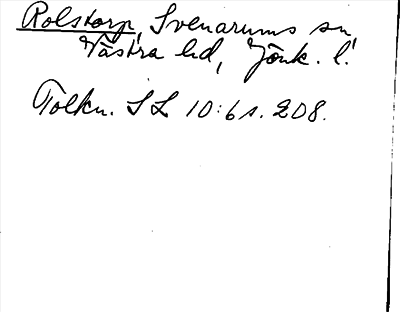 Rolstorp, Svenarums sn,
Västra hd, Jönk. l.
Tolkn. SL 10:6 s. 208.